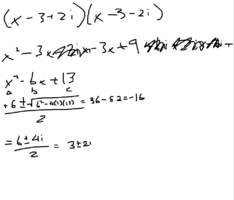 (x-3+2i)(x-3-2i)
x²-3x-3x+9+
x²-6x+13
a b c
+6±√6²-4(1)(13) = 36-52=-16
2
= 6±4i / 2 = 3±2i